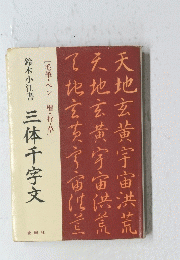 天地玄黄宇宙洪荒
天地玄黄宇宙洪荒
天地玄黄宇宙洪荒
毛筆・ペン 楷・行・草
三体千字文
鈴木小江書